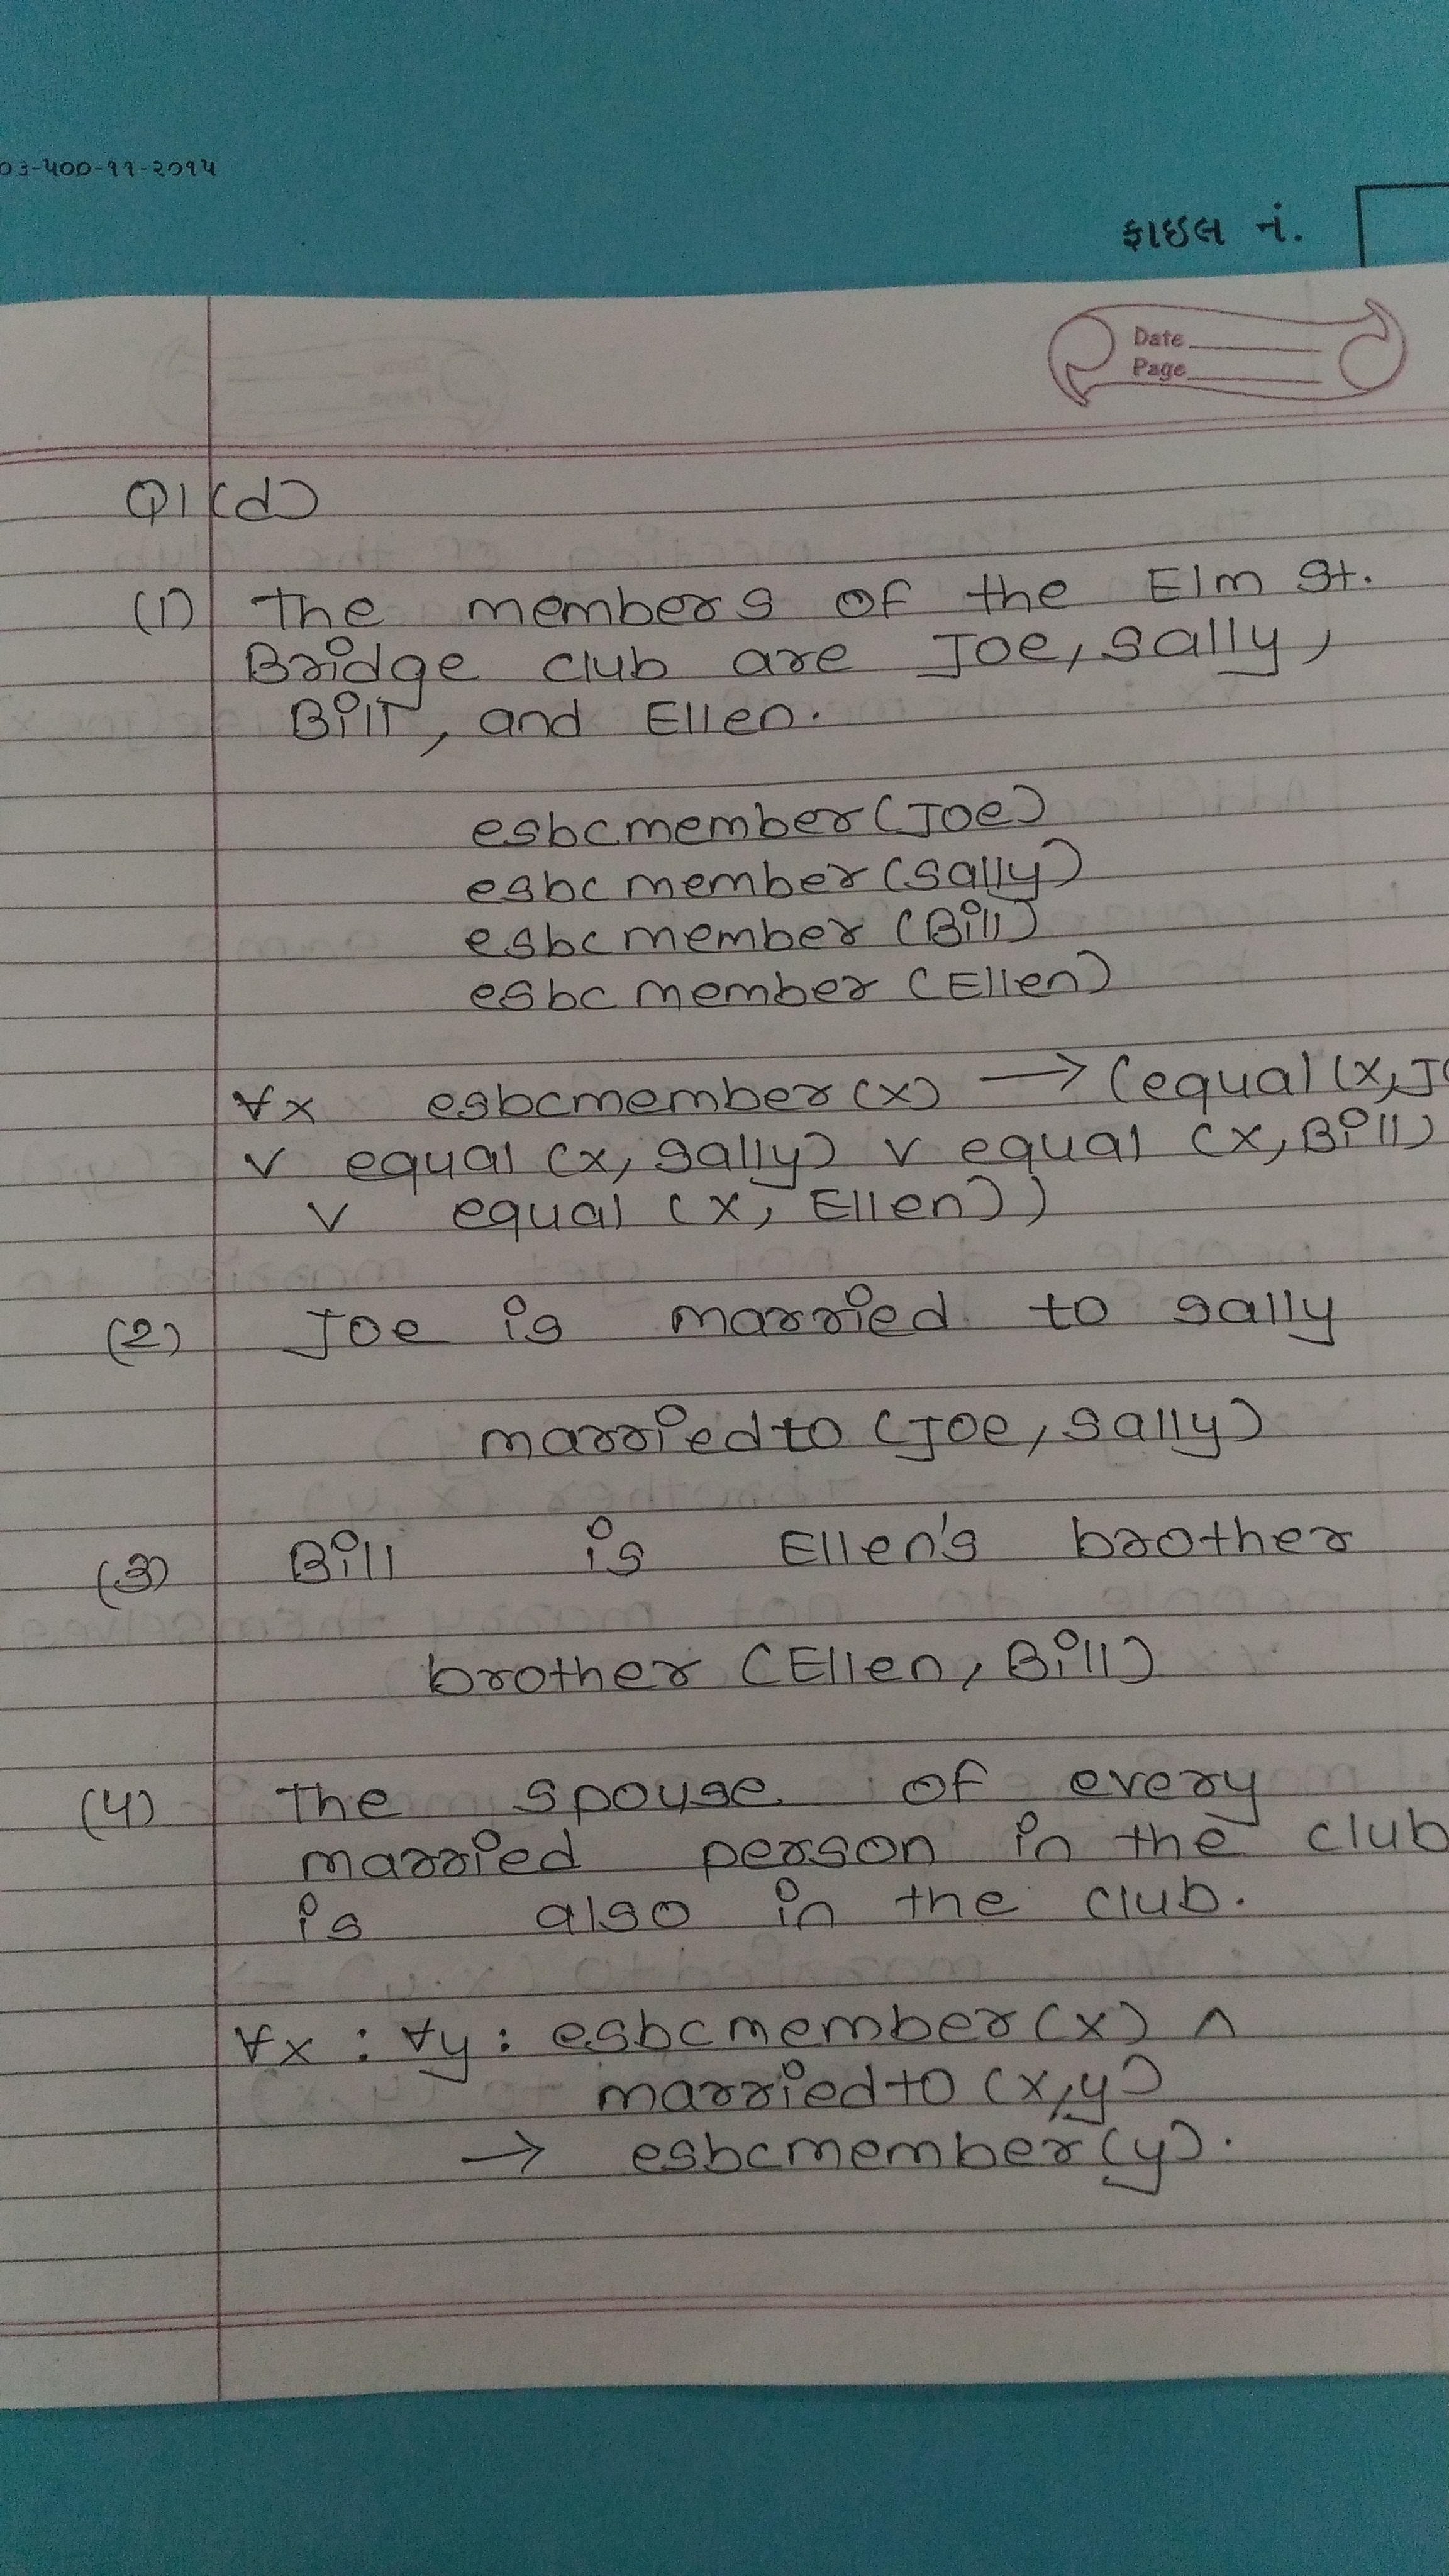 03-૫00-૧૧-૨૦૧૫
ફાઇલ નં.
Date
Page
Q1(d)
(1) The members of the Elm St.
Bridge club are Joe, Sally,
Bill, and Ellen.
esbcmember(Joe)
esbcmember(Sally)
esbcmember(Bill)
esbcmember(Ellen)
∀x esbcmember(x) → (equal(x,J
∨ equal(x, Sally) ∨ equal(x, Bill)
∨ equal(x, Ellen))
(2) Joe is married to Sally
marriedto(Joe, Sally)
(3) Bill is Ellen's brother
brother(Ellen, Bill)
(4) The spouse of every
married person in the club
is also in the club.
∀x : ∀y : esbcmember(x) ∧
marriedto(x,y)
→ esbcmember(y).